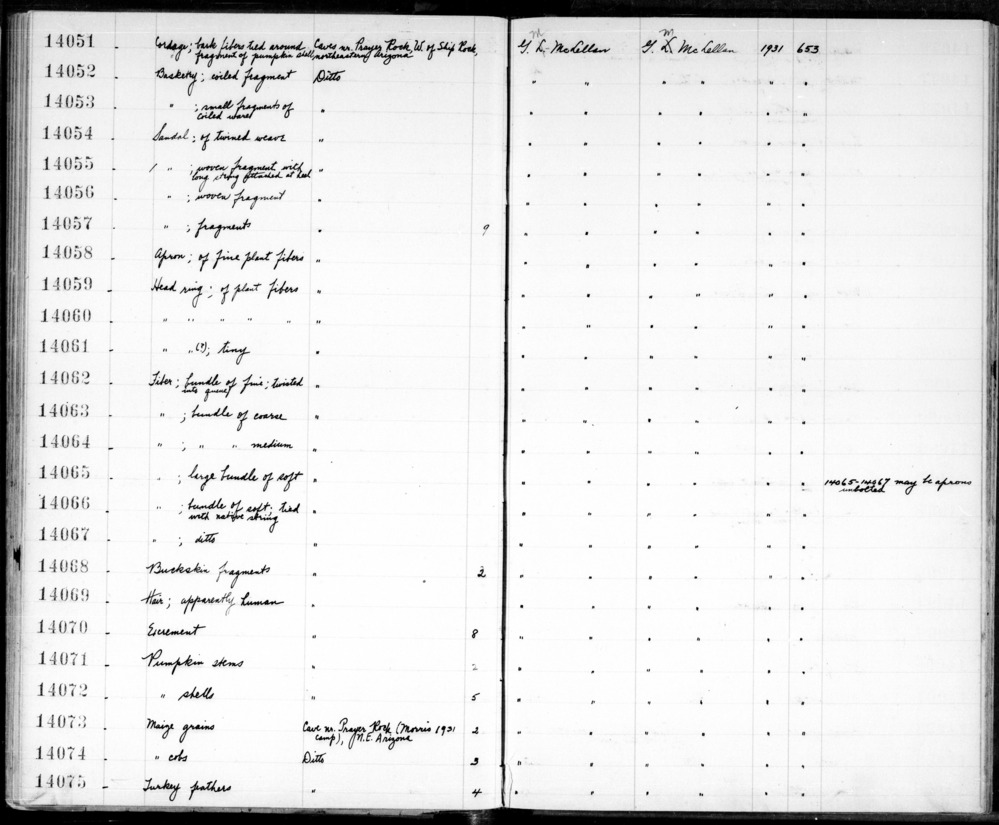 14051 - Cordage; bark fibers tied around fragment of pumpkin shell Caves nr. Prayer Rock, W. of Ship Rock, northeastern Arizona G. M. L. McLellan G. M. D. McLellan 1931 653
14052 - Basketry; coiled fragment Ditto " " " " " "
14053 - " ; small fragments of coiled ware " " " " " " "
14054 - Sandal; of twined weave " " " " " " "
14055 - / " ; woven fragment with long string attached at heel " " " " " " "
14056 - " ; woven fragment " " " " " " "
14057 - " ; fragments " 9 " " " " " "
14058 - Apron; of fine plant fibers " " " " " " "
14059 - Head ring; of plant fibers " " " " " " "
14060 - " " " " " " " " " " " "
14061 - " " (?); tiny " " " " " " "
14062 - Fiber; bundle of fine; twisted into queue " " " " " " "
14063 - " ; bundle of coarse " " " " " " "
14064 - " ; " " medium " " " " " " "
14065 - " ; large bundle of soft " " " " " " " 14065-14067 may be aprons unbolted
14066 - " ; bundle of soft; tied with native string " " " " " " "
14067 - " ; ditto " " " " " " "
14068 - Buckskin fragments " 2 " " " " " "
14069 - Hair; apparently human " " " " " " "
14070 - Excrement " 8 " " " " " "
14071 - Pumpkin stems " 2 " " " " " "
14072 - " shells " 5 " " " " " "
14073 - Maize grains Cave nr. Prayer Rock (Morris 1931 camp), N.E. Arizona 2 " " " " " "
14074 - " cobs Ditto 3 " " " " " "
14075 - Turkey feathers " 4 " " " " " "